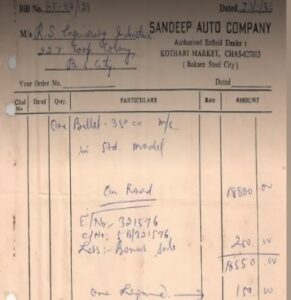 Bill No. 85-86/129 Dated 23/1/86
SANDEEP AUTO COMPANY
M/s R.S Engineering Industries
Authorised Enfield Dealer :
927 Coop Colony
KOTHARI MARKET, CHAS-827013
B.S. City
( Bokaro Steel City )
Your Order No. Dated
Chl Dated Qnty. PARTICULARS Rate AMOUNT
One Bullet - 350 cc m/c
in Std. model
On Road 18800 00
E/No:- 321576
C/No; 5B/321576
Less:- Bonus Sale 250 00
18550 00
one 150 00